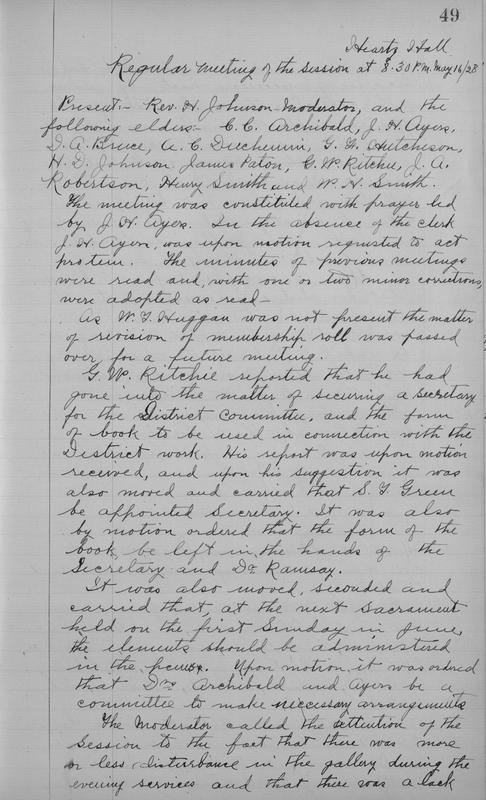 49
Heartz Hall
Regular meeting of the Session at 8.30 P.M. May 16/28
Present:- Rev. H. Johnson Moderator, and the
following elders:- C. C. Archibald, J. H. Ayers,
D. A. Bruce, A. C. Duchemin, G. F. Hutcheson,
H. D. Johnson James Paton, G. W. Ritchie, J. A.
Robertson, Henry Smith and W. H. Smith.
The meeting was constituted with prayer led
by J. H. Ayers. In the absence of the clerk
J. H. Ayers, was upon motion requested to act
protem. The minutes of previous meetings
were read and, with one or two minor corrections,
were adopted as read-
As W. F. Huggan was not present the matter
of revision of membership roll was passed
over, for a future meeting.
G. W. Ritchie reported that he had
gone into the matter of securing a secretary
for the District Committee, and the form
of book to be used in connection with the
District work. His report was upon motion
received, and upon his suggestion it was
also moved and carried that S. F. Green
be appointed Secretary. It was also
by motion ordered that the form of the
book, be left in the hands of the
Secretary and Dr. Ramsay.
It was also moved, seconded and
carried that, at the next Sacrament
held on the first Sunday in June,
the elements should be administered
in the pews. Upon motion it was ordered
that Drs Archibald and Ayers be a
committee to make necessary arrangements
The Moderator called the attention of the
Session to the fact that there was more
or less disturbance in the gallery during the
evening services and that there was a lack